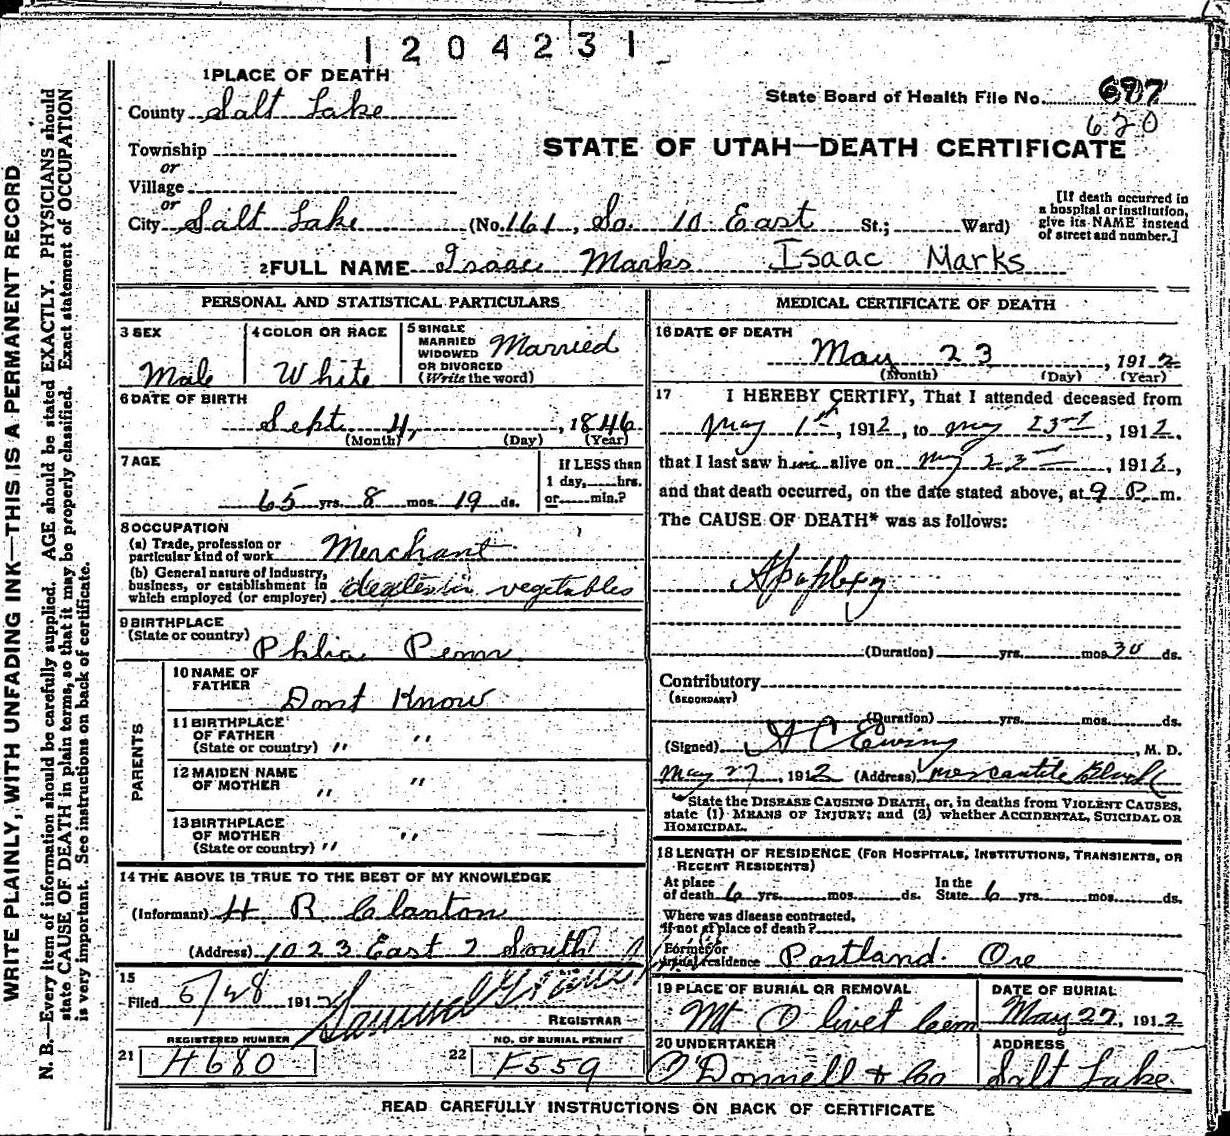 1204231
1 PLACE OF DEATH
State Board of Health File No. 697
620
County Salt Lake
STATE OF UTAH—DEATH CERTIFICATE
Township
or
Village
or
City Salt Lake (No. 161, So. 10 East St.; Ward)
[If death occurred in
a hospital or institution,
give its NAME instead
of street and number.]
2 FULL NAME Isaac Marks Isaac Marks
PERSONAL AND STATISTICAL PARTICULARS
3 SEX Male
4 COLOR OR RACE White
5 SINGLE
MARRIED
WIDOWED
OR DIVORCED
(Write the word) Married
6 DATE OF BIRTH
Sept. 4, 1846
(Month) (Day) (Year)
7 AGE
65 yrs. 8 mos. 19 ds.
If LESS than
1 day, hrs.
or min.?
8 OCCUPATION
(a) Trade, profession or
particular kind of work Merchant
(b) General nature of industry,
business, or establishment in
which employed (or employer) vegetables
9 BIRTHPLACE
(State or country) Phlia Penn
PARENTS
10 NAME OF
FATHER Dont Know
11 BIRTHPLACE
OF FATHER
(State or country) " "
12 MAIDEN NAME
OF MOTHER " "
13 BIRTHPLACE
OF MOTHER
(State or country) " "
14 THE ABOVE IS TRUE TO THE BEST OF MY KNOWLEDGE
(Informant) H R Clanton
(Address) 1023 East 2 South
15
Filed 5/28 1912 Samuel
REGISTRAR
21 REGISTERED NUMBER
H680
22 NO. OF BURIAL PERMIT
F559
MEDICAL CERTIFICATE OF DEATH
16 DATE OF DEATH
May 23, 1912
(Month) (Day) (Year)
17 I HEREBY CERTIFY, That I attended deceased from
May 1st, 1912, to May 23rd, 1912,
that I last saw him alive on May 23rd, 1912,
and that death occurred, on the date stated above, at 9 P. m.
The CAUSE OF DEATH* was as follows:
Apoplexy
(Duration) yrs. mos. 30 ds.
Contributory
(SECONDARY)
(Duration) yrs. mos. ds.
(Signed) H C Ewing, M. D.
May 27, 1912 (Address) Mercantile
*State the DISEASE CAUSING DEATH, or, in deaths from VIOLENT CAUSES,
state (1) MEANS OF INJURY; and (2) whether ACCIDENTAL, SUICIDAL OR
HOMICIDAL.
18 LENGTH OF RESIDENCE (FOR HOSPITALS, INSTITUTIONS, TRANSIENTS, OR
RECENT RESIDENTS)
At place
of death 6 yrs. mos. ds. In the
State 6 yrs. mos. ds.
Where was disease contracted,
if not at place of death?
Former or
usual residence Portland. Ore
19 PLACE OF BURIAL OR REMOVAL
Mt Olivet Cem
DATE OF BURIAL
May 27, 1912
20 UNDERTAKER
O'Donnell & Co
ADDRESS
Salt Lake
READ CAREFULLY INSTRUCTIONS ON BACK OF CERTIFICATE
WRITE PLAINLY, WITH UNFADING INK—THIS IS A PERMANENT RECORD
N. B.—Every item of information should be carefully supplied. AGE should be stated EXACTLY. PHYSICIANS should
state CAUSE OF DEATH in plain terms, so that it may be properly classified. Exact statement of OCCUPATION
is very important. See instructions on back of certificate.